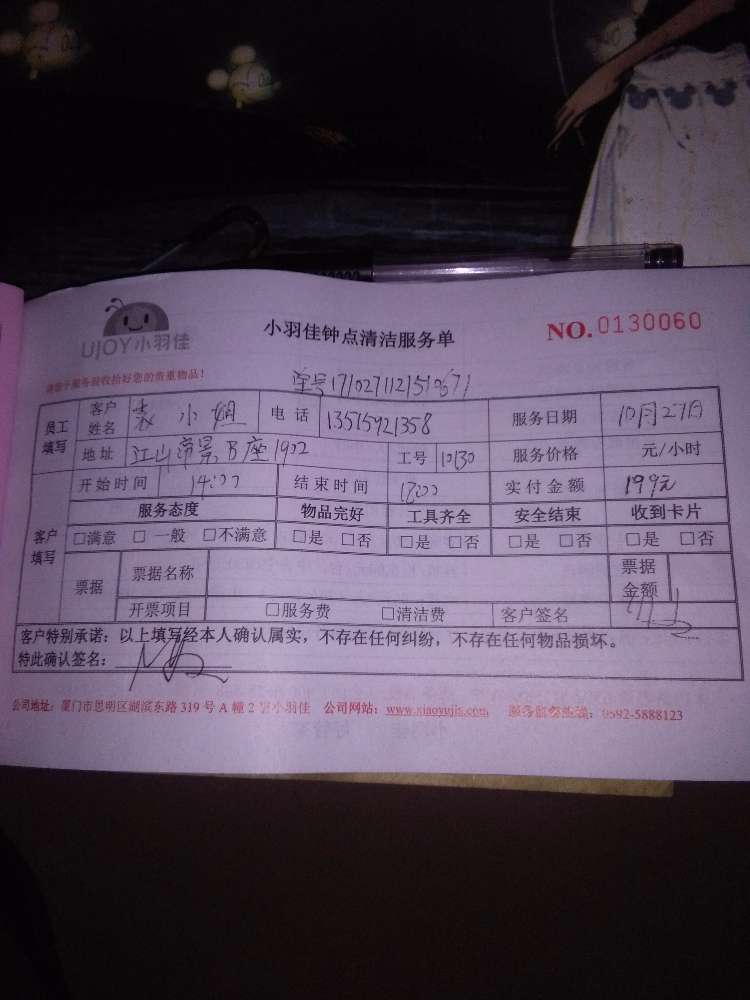 UJOY小羽佳
小羽佳钟点清洁服务单
NO.0130060
请您于服务前收拾好您的贵重物品!
单号171027112151967
员工填写 客户姓名 袁小姐 电话 13515921358 服务日期 10月27日
地址 江山帝景B座1902 工号 10130 服务价格 元/小时
客户填写 开始时间 14:00 结束时间 17:00 实付金额 199元
服务态度 物品完好 工具齐全 安全结束 收到卡片
□满意 □一般 □不满意 □是 □否 □是 □否 □是 □否 □是 □否
票据 票据名称 票据金额
开票项目 □服务费 □清洁费 客户签名
客户特别承诺:以上填写经本人确认属实,不存在任何纠纷,不存在任何物品损坏。
特此确认签名:
公司地址:厦门市思明区湖滨东路319号A幢2层小羽佳 公司网站:www.xiaoyujia.com 服务监督热线:0592-5888123